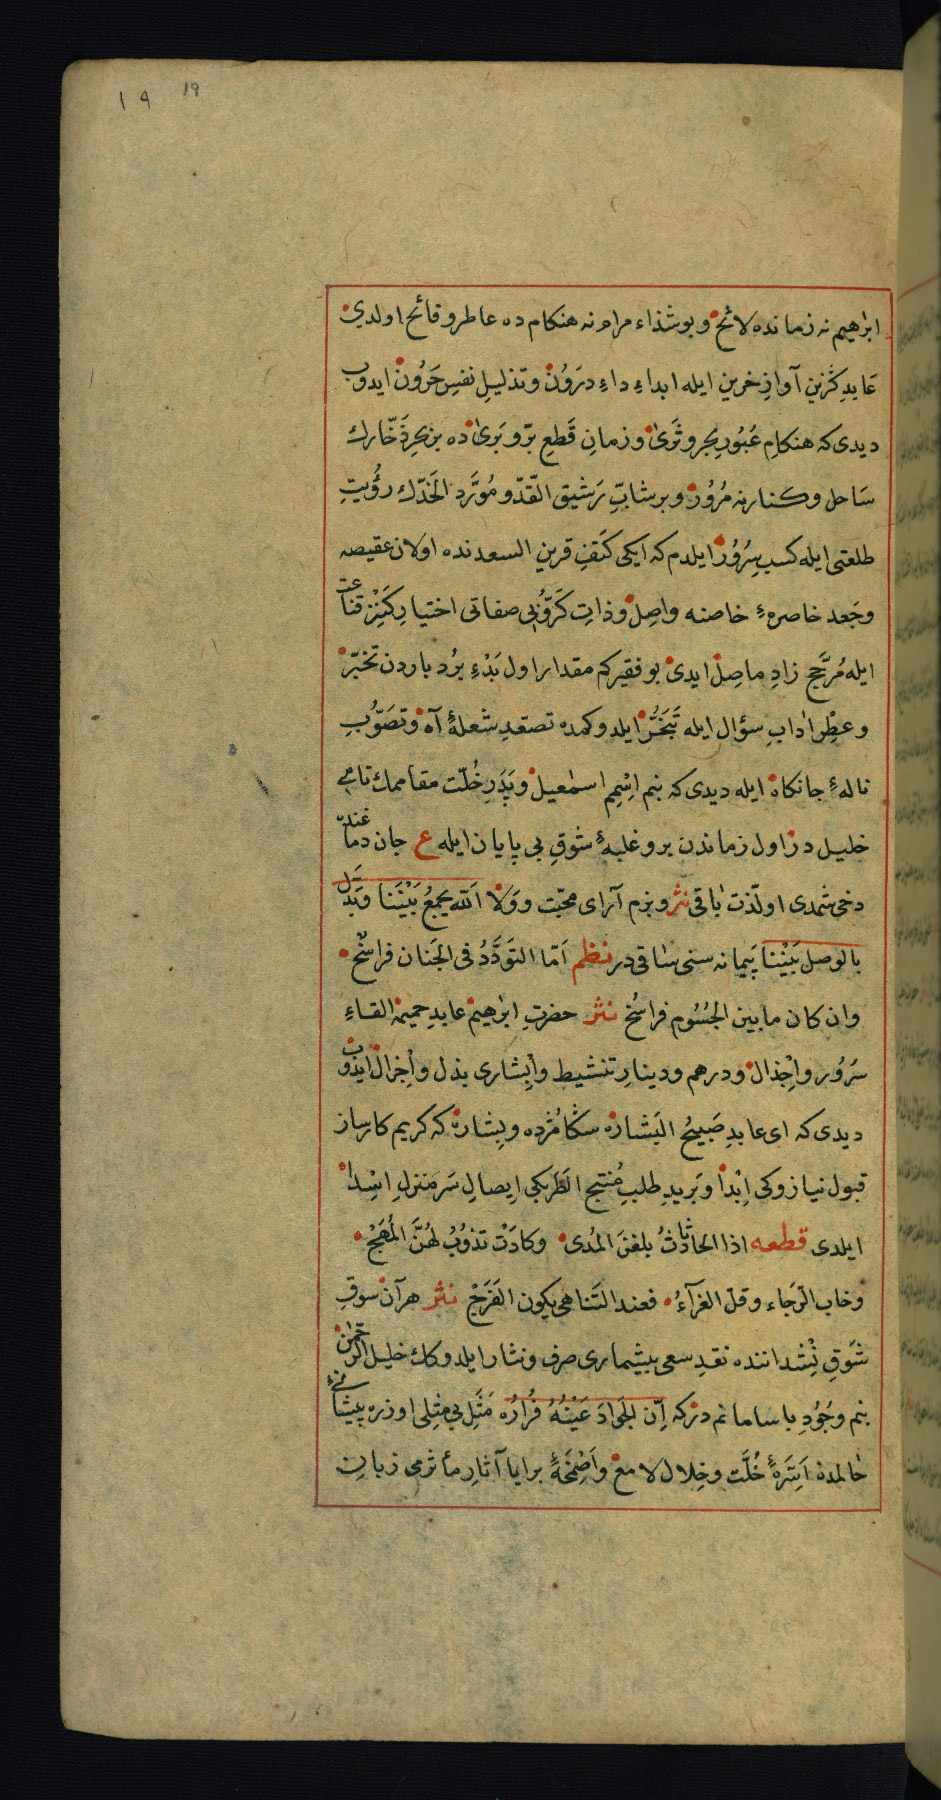 ١٩ 19
ابرٰهيم نه زمانده لائح و بو شذاء مرام نه هنكام ده عاطر و فائح اولدى
عَابدِ كُزين آوازِ خرين ايله ابداءِ داءِ درَوُن و تذليلِ نفسِ حَرُون ايدوب
ديدى كه هنكامِ عَبُورِ بحر و ثَرىٰ و زمانِ قَطعِ برّ و بَرىٰ ده بن بحرِ ذَخّارك
سَاحل و كنارنه مرُور و بر شابِّ رَشيق القدّ و مُوَرَّد الخَدّك رؤيتِ
طلعتى ايله كسبِ سِرُور ايلدم كه ايكى كتفِ قرين السعدنده اولان عقيصه
و جَعد خاصرهٔ خاصنه واصل و ذاتِ كَرّوُبى صفاتى اختيارِ كَنْزِ قناعت
ايله مُرَجَّح زادِ ماصِل ايدى بو فقيركم مقدار اول بَدْءِ برُد باردن تخبّر
و عِطْرِ ادٰابِ سؤال ايله تَبَخُّر ايلدوكمده تصعّدِ شعلهٔ آه و تصَوُّبِ
نالهٔ جانكاه ايله ديدى كه بنم اسْمِم اسمٰعيل و پَدَرِ خُلّت مقاممك نامى
خليل در اول زماندن برو غلبهٔ شوقِ بى پايان ايله ع جان دماغندن
دخى شمدى اولذت باقى نثر و بزم آراى محبّت و وَلا الله يجمعُ بَيْنَنا و بَدّل
بالوصل بَيْنَنا پَيمانه سنى ساقى در نظم اَمّا التوَدُّدُ فى الجَنان فراسخٌ
وان كان مابين الجُسُوم فراسُخ نثر حضرتِ ابرٰهيم عابدِ حميمه القاءِ
سَرُور و اِجْذال و درهم و دينارِ تنشيط و اِبشارى بذل و اِجْزال ايدوب
ديدى كه اى عابدِ صَبيحُ البَشاره سكا مُژده و بِشاره كه كريم كارساز
قبول نيازوكى اِبْدا و بَريدِ طلبِ مُنتج الطَربكى اِيصالِ سَرمنزلِ اسْدا
ايلدى قطعه اذا الحادثاتُ بلغنَ المُدى و كادَتْ تذوُبُ لهُنَّ المُهَجْ
و خاب الرَجاء و قلّ العزآءُ فعند التَناهى يكون الفَرَجْ نثر هر آن سوقِ
شَوقِ نِشْداننده نقدِ سعى بيشمارى صرف و نثار ايلدوكك خليل الرّحمٰن
بنم وجُودِ باسامانم در كه اِنَّ الجَوادَ عَيْنُهُ فُرارُه مَثَلِ بى مِثِلى اوزره پيشانئِ
حالمده اَسِرَّهٔ خُلَّت و خِلال لامع و اَضْمِخَهٔ برايا آثارِ مأثرمى زبانِ